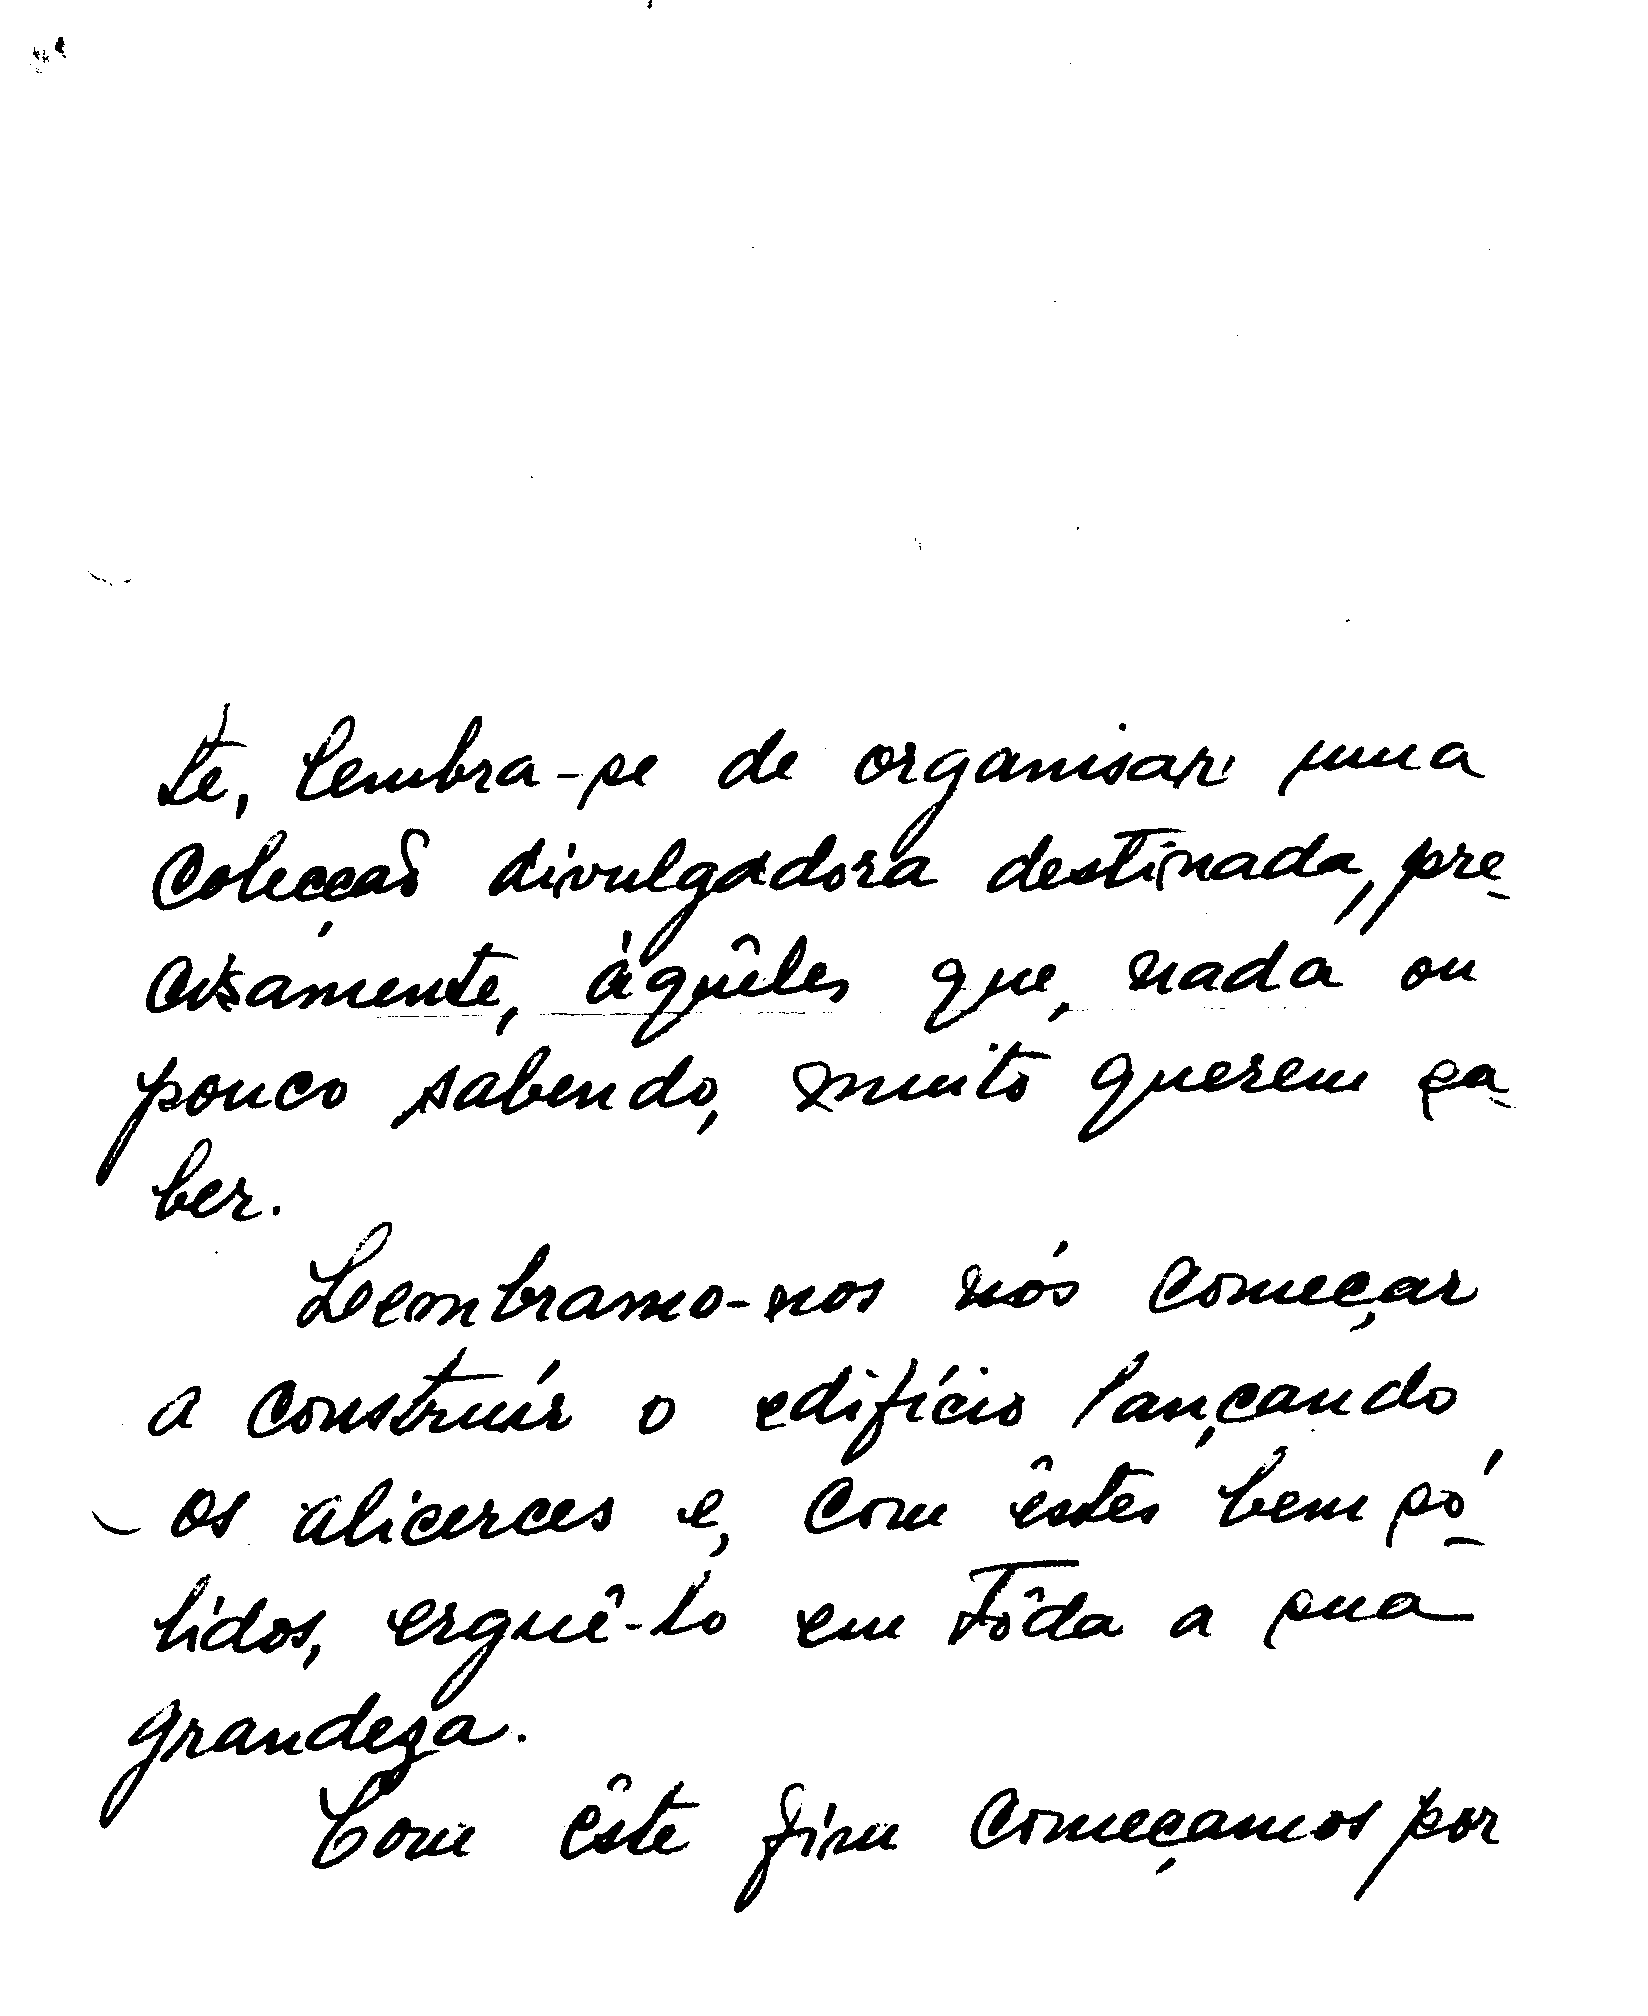 te, lembra-se de organisar uma
colecção divulgadora destinada, pre-
cisamente, àquêles que, nada ou
pouco sabendo, muito querem sa-
ber.
Lembramo-nos nós começar
a construír o edifício lançando
os alicerces e, com êstes bem só-
lidos, erguê-lo em tôda a sua
grandeza.
Com êste fim começamos por